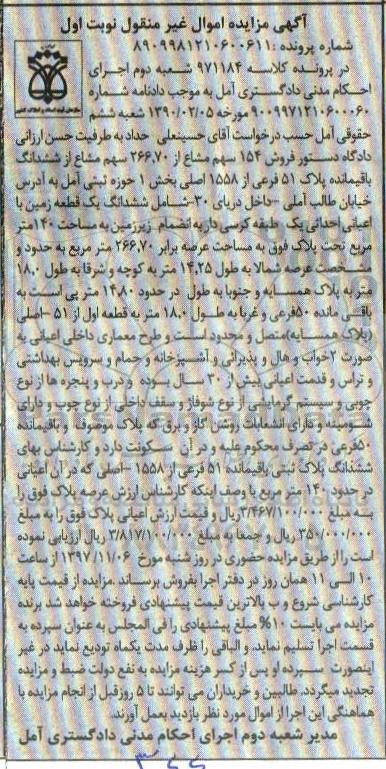 آگهی مزایده اموال غیر منقول نوبت اول
شماره پرونده :۸۹۰۹۹۸۱۲۱۰۶۰۰۶۱۱
در پرونده کلاسه ۹۷۱۱۸۴ شعبه دوم اجرای
احکام مدنی دادگستری آمل به موجب دادنامه شماره
۹۰۰۹۹۷۱۲۱۰۶۰۰۰۶۰ مورخه ۱۳۹۰/۰۲/۰۵ شعبه ششم
حقوقی آمل حسب درخواست آقای حسینعلی حداد به طرفیت حسن ارزانی
دادگاه دستور فروش ۱۵۴ سهم مشاع از ۲۶۶,۷۰ سهم مشاع از ششدانگ
باقیمانده پلاک ۵۱ فرعی از ۱۵۵۸ اصلی بخش ۱ حوزه ثبتی آمل به آدرس
خیابان طالب آملی -داخل دریای ۳۰-شامل ششدانگ یک قطعه زمین با
اعیانی احداثی یک طبقه کرسی دار به انضمام زیرزمین به مساحت ۱۴۰متر
مربع تحت پلاک فوق به مساحت عرصه برابر ۲۶۶,۷۰ متر مربع به حدود و
مشخصات عرصه شمالا به طول ۱۴,۲۵ متر به کوچه و شرقا به طول ۱۸,۰
متر به پلاک همسایه و جنوبا به طول در حدود ۱۴,۸۰ متر پی است به
باقی مانده ۵۰فرعی و غربا به طول ۱۸,۰ متر به قطعه اول از ۵۱ -اصلی
(پلاک همسایه)متصل و محدود است و طرح معماری داخلی اعیانی به
صورت ۲خواب و هال و پذیرائی و آشپزخانه و حمام و سرویس بهداشتی
و تراس و قدمت اعیانی بیش از ۳۰ سال بوده و درب و پنجره ها از نوع
چوبی و سیستم گرمایشی از نوع شوفاژ و سقف داخلی از نوع چوب و دارای
شومینه و دارای انشعابات روشن گاز و برق که پلاک موصوف و باقیمانده
۵۰فرعی در تصرف محکوم علیه و در آن سکونت دارد و کارشناس بهای
ششدانگ پلاک ثبتی باقیمانده ۵۱ فرعی از ۱۵۵۸ -اصلی که در آن اعیانی
در حدود ۱۴۰ متر مربع با وصف اینکه کارشناس ارزش عرصه پلاک فوق را
به مبلغ ۳/۴۶۷/۱۰۰/۰۰۰ریال و قیمت ارزش اعیانی پلاک فوق را به مبلغ
۳۵۰/۰۰۰/۰۰۰ ریال و جمعا به مبلغ ۳/۸۱۷/۱۰۰/۰۰۰ ریال ارزیابی نموده
است را از طریق مزایده حضوری در روز شنبه مورخ ۱۳۹۷/۱۱/۰۶ از ساعت
۱۰ الی ۱۱ همان روز در دفتر اجرا بفروش برساند .مزایده از قیمت پایه
کارشناسی شروع و ب بالاترین قیمت پیشنهادی فروخته خواهد شد برنده
مزایده می بایست ۱۰% مبلغ پیشنهادی را فی المجلس به عنوان سپرده به
قسمت اجرا تسلیم نماید. و الباقی را ظرف مدت یکماه تودیع نماید در غیر
اینصورت سپرده او پس از کسر هزینه مزایده به نفع دولت ضبط و مزایده
تجدید میگردد. طالبین و خریداران می توانند تا ۵ روزقبل از انجام مزایده با
هماهنگی این اجرا از اموال مورد نظر بازدید بعمل آورند.
مدیر شعبه دوم اجرای احکام مدنی دادگستری آمل